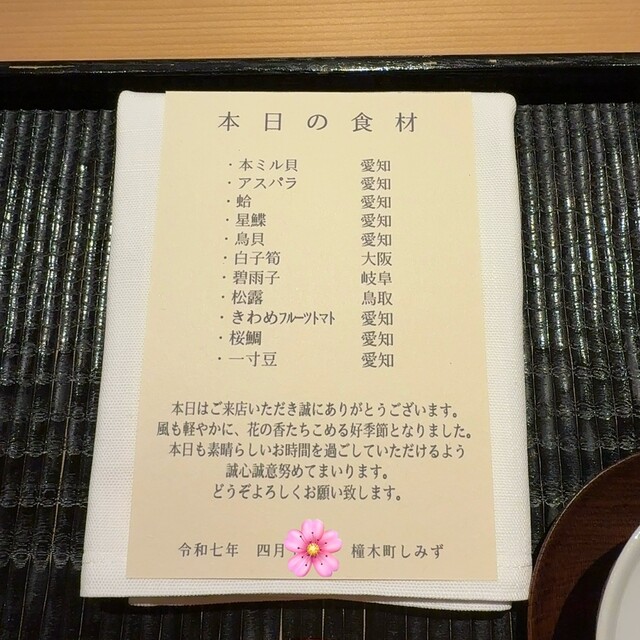 本日の食材
・本ミル貝 愛知
・アスパラ 愛知
・蛤 愛知
・星鰈 愛知
・鳥貝 愛知
・白子筍 大阪
・碧雨子 岐阜
・松露 鳥取
・きわめフルーツトマト 愛知
・桜鯛 愛知
・一寸豆 愛知
本日はご来店いただき誠にありがとうございます。
風も軽やかに、花の香たちこめる好季節となりました。
本日も素晴らしいお時間を過ごしていただけるよう
誠心誠意努めてまいります。
どうぞよろしくお願い致します。
令和七年 四月 橦木町しみず